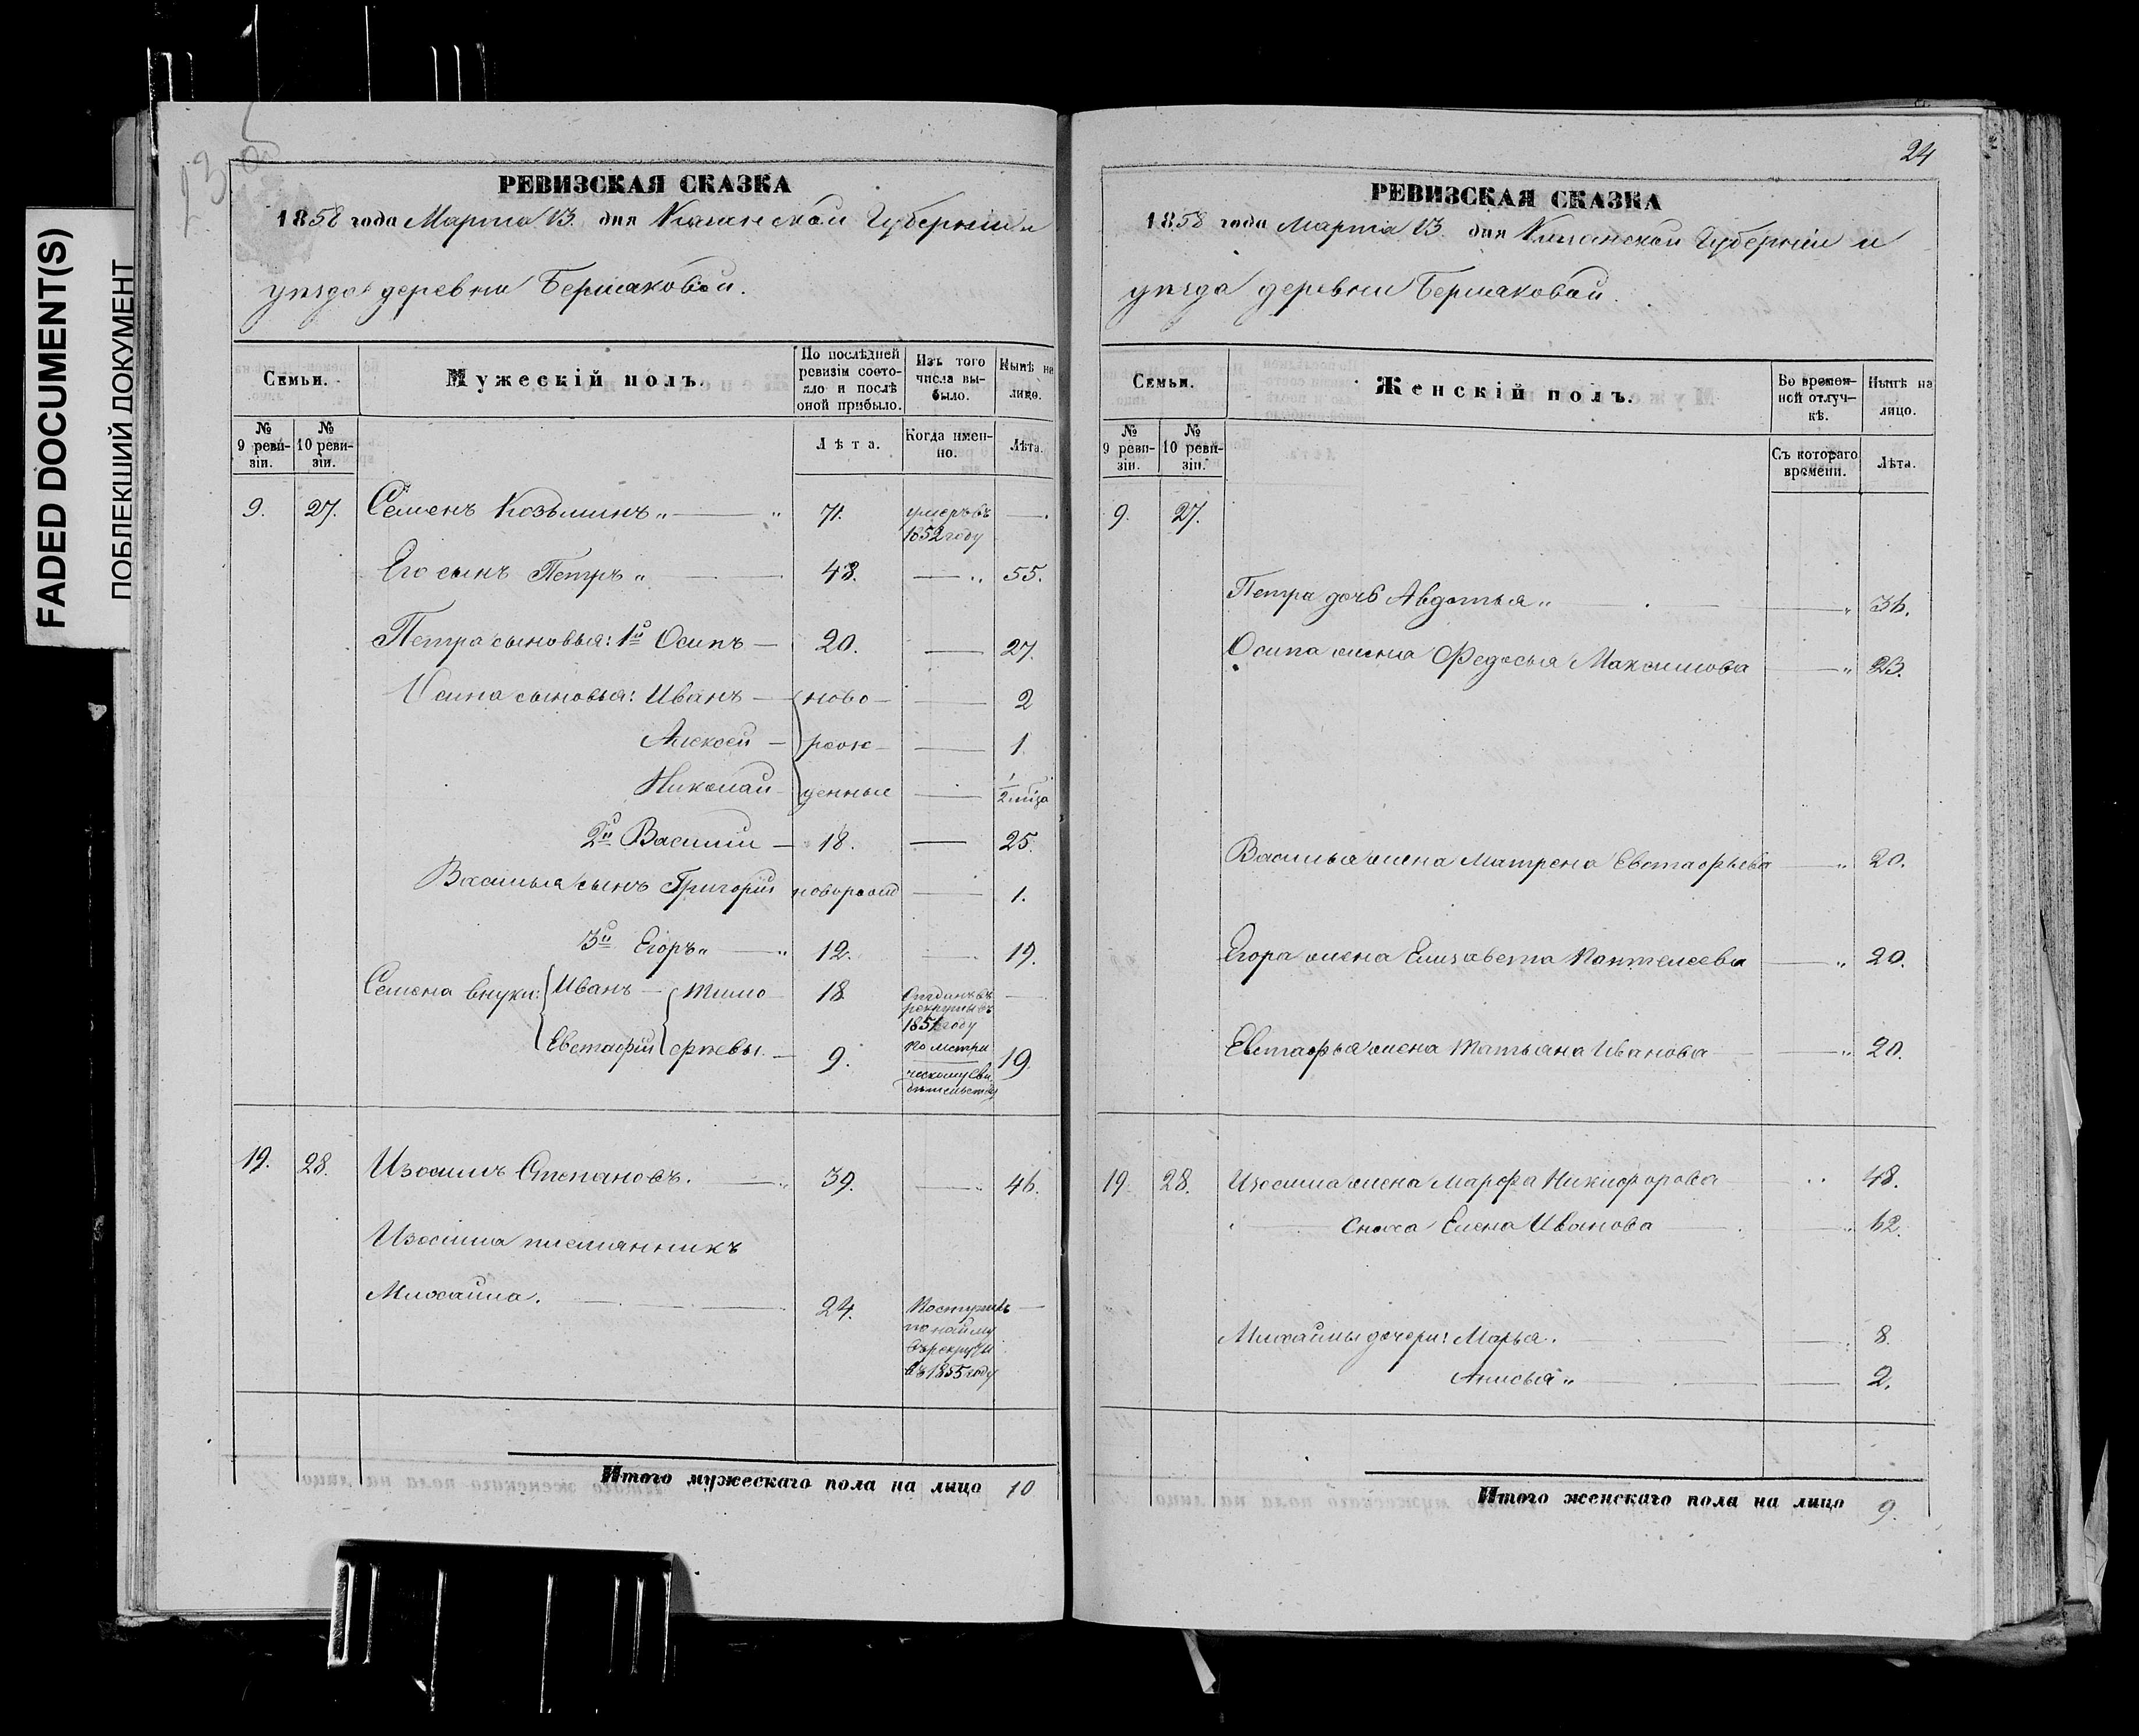 FADED DOCUMENT(S)
ПОБЛЕКШИЙ ДОКУМЕНТ
РЕВИЗСКАЯ СКАЗКА
1858 года Марта 13. дня Казанской Губерніи и
уѣзда деревни Бермаковой.
Семьи.
Мужескій полъ.
По послѣдней ревизіи состояло и послѣ оной прибыло.
Изъ того числа выбыло.
Нынѣ на лицо.
№ 9 ревизіи.
№ 10 ревизіи.
Лѣта.
Когда именно.
Лѣта.
9. 27. Семенъ Козьминъ 71. умеръ въ
1852 году
Его сынъ Петръ 48. 55.
Петра сыновья: 1й Осипъ 20. 27.
Осипа сыновья: Иванъ ново 2
Алексей рож 1
Николай денные 1/2 мѣца
2й Василий 18. 25.
Василья сынъ Григорій новорожд 1.
3й Егоръ 12. 19.
Семена внуки: Иванъ Тимо 18 Отданъ въ
рекруты въ
1854 году
Евстафій ѳеевы. 9. По метри 19.
ческому сви
дѣтельству
19. 28. Изосимъ Степановъ. 39. 46.
Изосима племянникъ
Михаила. 24. Поступилъ
по найму
въ рекруты
въ 1855 году
Итого мужескаго пола на лицо 10
24
РЕВИЗСКАЯ СКАЗКА
1858 года Марта 13 дня Казанской Губерніи и
уѣзда деревни Бермаковой.
Семьи.
Женскій полъ.
Во временной отлучкѣ.
Нынѣ на лицо.
№ 9 ревизіи.
№ 10 ревизіи.
Съ котораго времени.
Лѣта.
9. 27.
Петра дочь Авдотья 36.
Осипа жена Федосья Максимова 23.
Василья жена Матрена Евстафьева 20.
Егора жена Елизавета Пантелеева 20.
Евстафья жена Татьяна Иванова 20.
19. 28. Изосима жена Марфа Никифорова 48.
Сноха Елена Иванова 62.
Михайлы дочери: Марья. 8.
Анисья 2.
Итого женскаго пола на лицо 9.